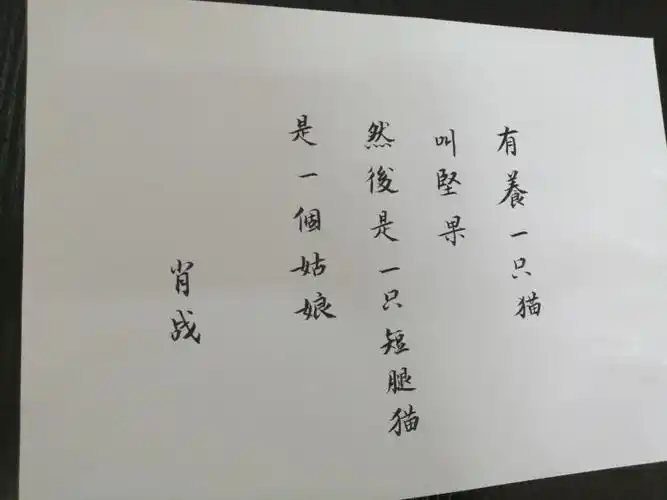 有養一只猫
叫堅果
然後是一只短腿猫
是一個姑娘
肖战